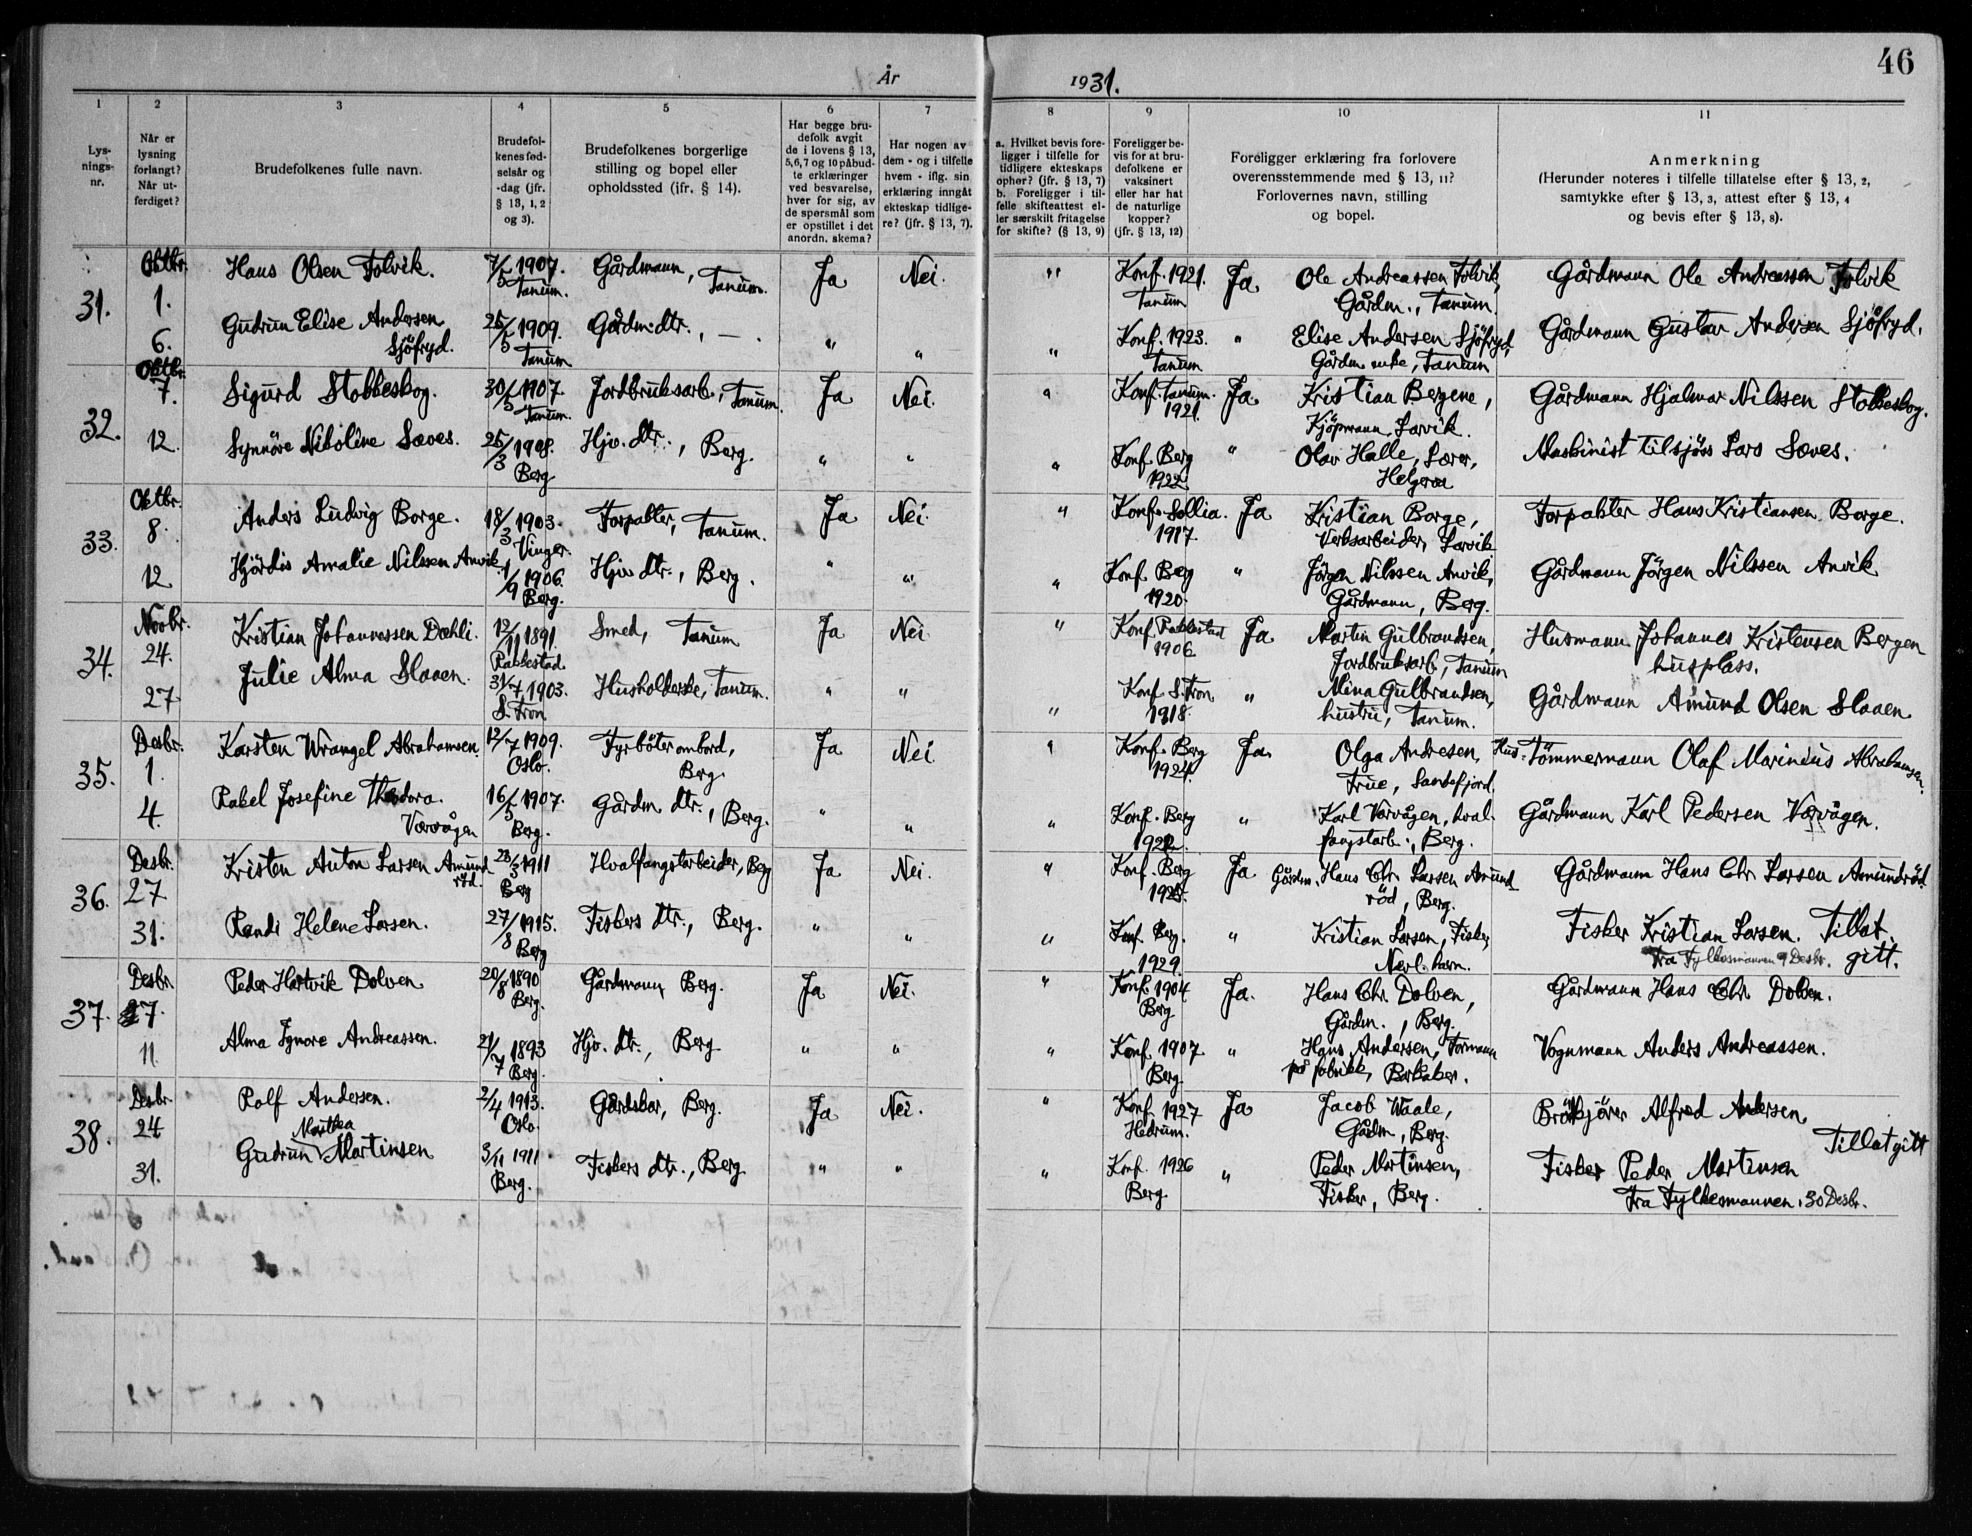 46
År 1931.
1 2 3 4 5 6 7 8 9 10 11
Lys-
nings-
nr.
Når er
lysning
forlangt?
Når ut-
ferdiget?
Brudefolkenes fulle navn.
Brudefol-
kenes fød-
selsår og
-dag (jfr.
§ 13, 1, 2
og 3).
Brudefolkenes borgerlige
stilling og bopel eller
opholdssted (ifr. § 14).
Har begge bru-
defolk avgit
de i lovens § 13,
5, 6, 7 og 10 påbud-
te erklæringer
ved besvarelse,
hver for sig, av
de spørsmål som
er opstillet i det
anordn. skema?
Har nogen av
dem - og i tilfelle
hvem - iflg. sin
erklæring inngåt
ekteskap tidlige-
re? (jfr. § 13, 7).
a. Hvilket bevis fore-
ligger i tilfelle for
tidligere ekteskaps
ophør? (jfr. § 13, 7)
b. Foreligger i til-
felle skifteattest el-
ler særskilt fritagelse
for skifte? (§ 13, 9)
Foreligger be-
vis for at bru-
defolkene er
vaksinert
eller har hat
de naturlige
kopper?
(jfr. § 13, 12)
Foreligger erklæring fra forlovere
overensstemmende med § 13, 11?
Forlovernes navn, stilling
og bopel.
Anmerkning
(Herunder noteres i tilfelle tillatelse efter § 13, 2,
samtykke efter § 13, 3, attest efter § 13, 4
og bevis efter § 13, 8).
31.
Oktbr.
1.
6.
Hans Olsen Folvik.
7/5 1907.
Tanum.
Gårdmann, Tanum.
Ja
Nei.
"
Konf. 1921.
Tanum
Ja
Ole Andreassen Folvik,
Gårdm., Tanum
Gårdmann Ole Andreassen Folvik
Gudrun Elise Andersen
Sjöfryd.
25/5 1909.
Tanum
Gårdm: dtr., —.
"
"
"
Konf. 1923.
Tanum
"
Elise Andersen Sjöfryd,
Gårdm enke, Tanum
Gårdmann Gustav Andersen Sjöfryd.
32.
Oktbr.
7.
12.
Sigurd Stokkeskog.
30/5 1907
Tanum.
Jordbruksarb., Tanum.
Ja
Nei.
"
Konf. Tanum.
1921.
Ja
Kristian Bergene,
Kjöpmann, Larvik.
Gårdmann Hjalmar Nilssen Stokkeskog.
Synnöve Nikoline Sæves.
25/3 1908.
Berg
Hjv. dtr., Berg.
"
"
"
Konf. Berg
1922
"
Olav Halle, Lærer,
Helgeroa
Maskinist tilsjös Lars Sæves.
33.
Oktbr.
8.
12
Anders Ludvig Borge.
18/3 1903.
Vinger.
Forpakter, Tanum.
Ja
Nei.
"
Konf. Sollia.
1917
Ja
Kristian Borge,
Verksarbeider, Larvik
Forpakter Hans Kristiansen Borge.
Hjördis Amalie Nilssen Anvik
1/9 1906.
Berg.
Hjv dtr., Berg.
"
"
"
Konf. Berg
1920.
"
Jörgen Nilssen Anvik,
Gårdmann, Berg.
Gårdmann Jörgen Nilssen Anvik
34.
Novbr.
24.
27
Kristian Johannessen Dæhli.
12/11 1891.
Rakkestad
Smed, Tanum
Ja
Nei.
"
Konf. Rakkestad
1906
Ja
Martin Gulbrandsen,
Jordbruksarb., Tanum
Husmann Johannes Kristensen Bergen
husplass.
Julie Alma Slaaen.
31/7 1903.
S. Fron
Husholderske, Tanum.
"
"
"
Konf. S. Fron
1918.
"
Mina Gulbrandsen,
hustru, Tanum.
Gårdmann Amund Olsen Slaaen
35.
Desbr.
1.
4.
Karsten Wrangel Abrahamsen.
12/7 1909.
Oslo.
Fyrböter ombord,
Berg.
Ja
Nei
"
Konf. Berg
1924
Ja
Olga Andresen,
Frue, Sandefjord.
Hus-Tömmermann Olaf Marinius Abrahamsen.
Rakel Josefine Theodora.
Varvågen
16/5 1907.
Berg.
Gårdm dtr., Berg.
"
"
"
Konf. Berg
1922.
"
Karl Varvågen, hval-
fangstarb., Berg.
Gårdmann Karl Pedersen Varvågen.
36.
Desbr.
27
31.
Kristen Anton Larsen Amund
röd.
28/3 1911
Berg
Hvalfangstarbeider, Berg
Ja
Nei.
"
Konf. Berg
1925.
Ja
Gårdm. Hans Chr. Larsen Amund
röd, Berg.
Gårdmann Hans Chr. Larsen Amundröd.
Randi Helene Larsen.
27/8 1915.
Berg
Fiskers dtr., Berg.
"
"
"
Konf. Berg.
1929.
"
Kristian Larsen, Fisker,
Nevl. havn.
Fisker Kristian Larsen. Tillat.
fra Fylkesmannen 9 Desbr. gitt.
37.
Desbr.
27.
11
Peder Hartvik Dolven
20/8 1890
Berg.
Gårdmann, Berg.
Ja
Nei.
"
Konf. 1904
Berg
Ja.
Hans Chr. Dolven,
Gårdm., Berg.
Gårdmann Hans Chr. Dolven.
Alma Ignore Andreassen.
21/7 1893
Berg.
Hjv. dtr., Berg
"
"
"
Konf. 1907
Berg.
"
Hans Andersen, Formann
på fabrikk, Barkaker.
Vognmann Anders Andreassen.
38.
Desbr.
24
31.
Rolf Andersen.
2/4 1913.
Oslo.
Gårdskar, Berg.
Ja
Nei.
"
Konf. 1927
Hedrum.
Ja
Jacob Waale,
Gårdm, Berg.
Brökjörer Alfred Andersen,
Tillat gitt
Martha
Gudrun Martinsen
3/11 1911.
Berg.
Fiskers dtr., Berg
"
"
"
Konf. 1926
Berg
"
Peder Martinsen,
Fisker, Berg.
Fisker Peder Martinsen
Fra Fylkesmannen. 30 Desbr.